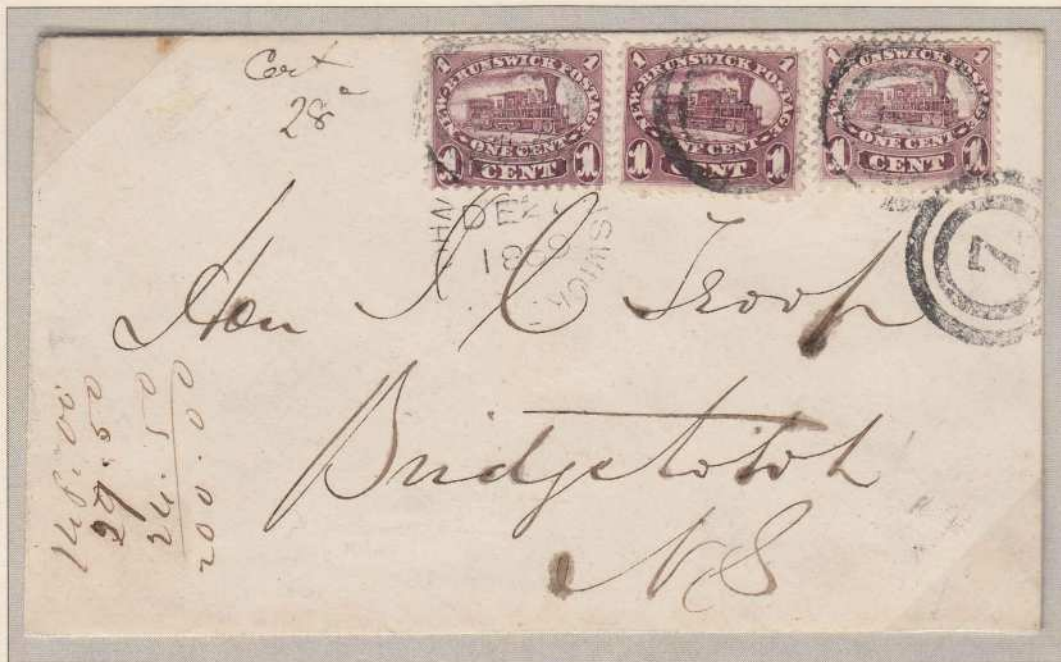 28
1 NEW BRUNSWICK POSTAGE 1
ONE CENT
1 CENT 1
1 NEW BRUNSWICK POSTAGE 1
ONE CENT
1 CENT 1
1 NEW BRUNSWICK POSTAGE 1
ONE CENT
1 CENT 1
DE
7
Hon J C Troop
Bridgetown
N S
29.50
24.50
200.00